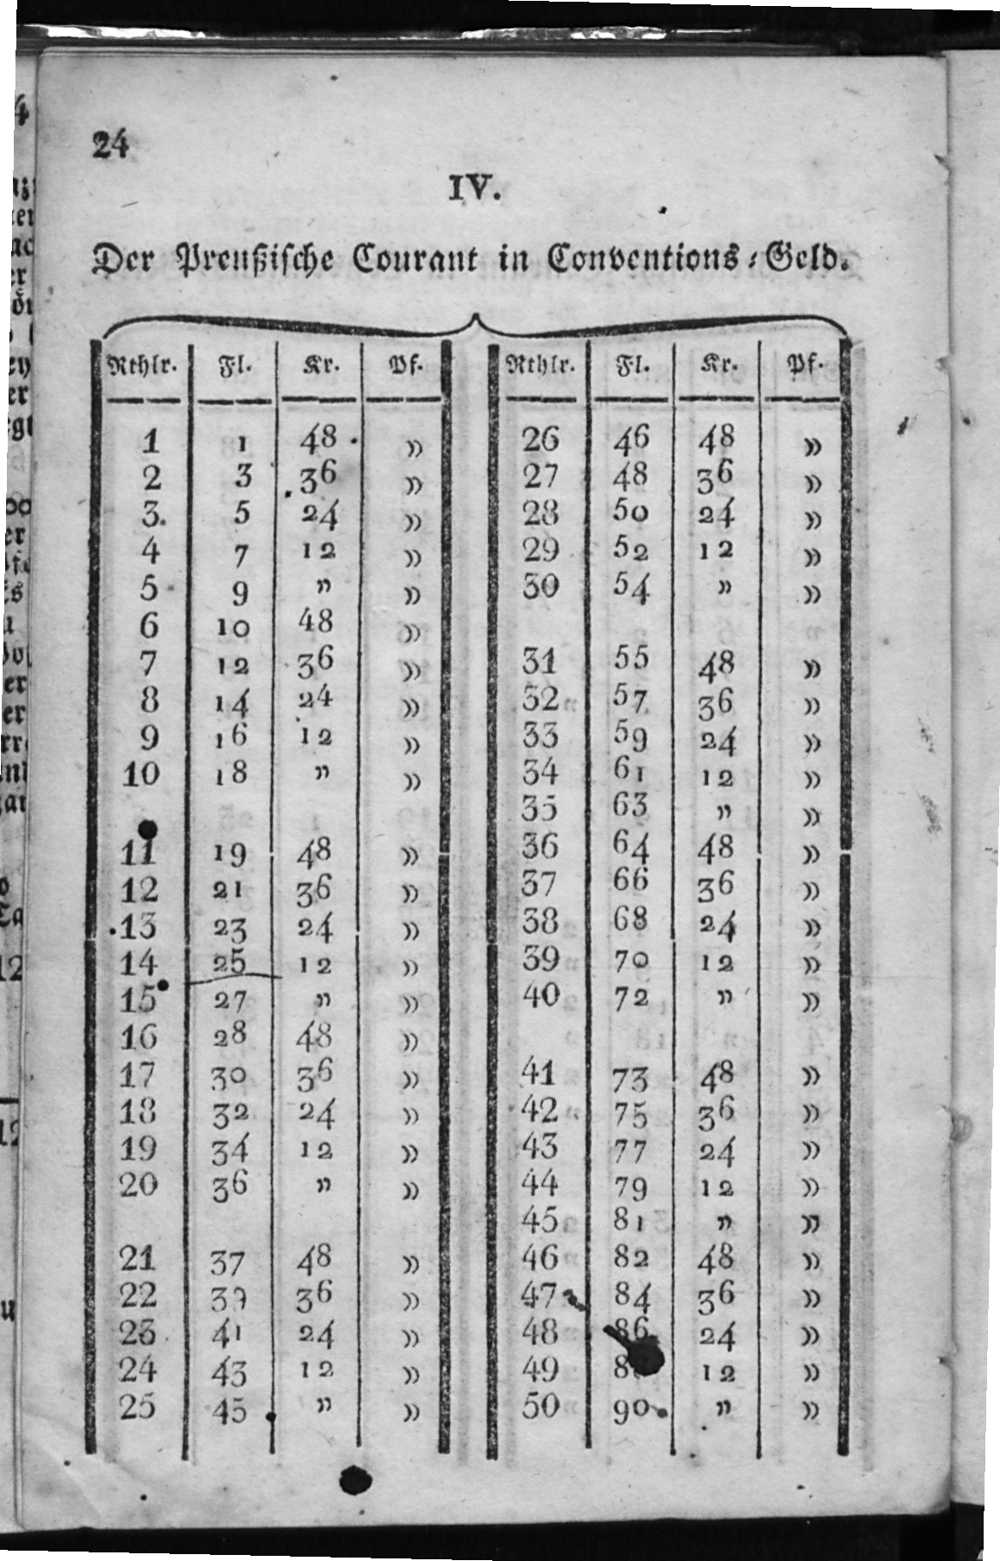 24
IV.
Der Preußische Courant in Conventions-Geld.
Rthlr. Fl. Kr. Pf. Rthlr. Fl. Kr. Pf.
1 1 48 » 26 46 48 »
2 3 36 » 27 48 36 »
3 5 24 » 28 50 24 »
4 7 12 » 29 52 12 »
5 9 » » 30 54 » »
6 10 48 »
7 12 36 » 31 55 48 »
8 14 24 » 32 57 36 »
9 16 12 » 33 59 24 »
10 18 » » 34 61 12 »
35 63 » »
11 19 48 » 36 64 48 »
12 21 36 » 37 66 36 »
13 23 24 » 38 68 24 »
14 25 12 » 39 70 12 »
15 27 » » 40 72 » »
16 28 48 »
17 30 36 » 41 73 48 »
18 32 24 » 42 75 36 »
19 34 12 » 43 77 24 »
20 36 » » 44 79 12 »
45 81 » »
21 37 48 » 46 82 48 »
22 39 36 » 47 84 36 »
23 41 24 » 48 86 24 »
24 43 12 » 49 12 »
25 45 » » 50 90 » »